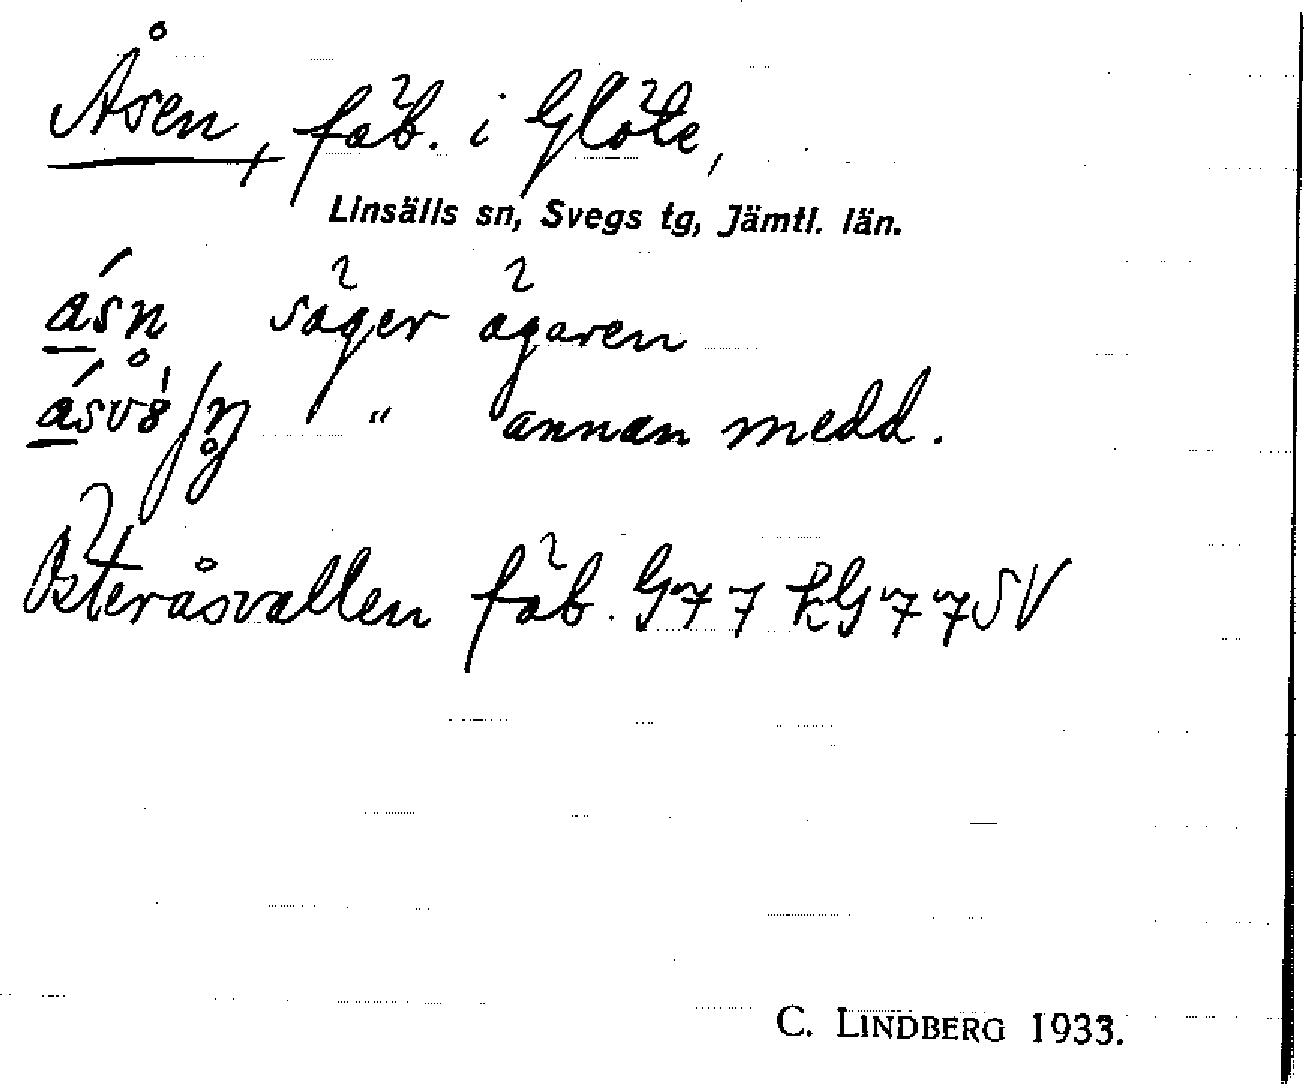 Åsen, fäb. i Glöte,
Linsälls sn, Svegs tg, Jämtl. län.
åsn säger ägaren
" annan medd.
Österåsvallen fäb. G77 kG77SV
C. LINDBERG 1933.